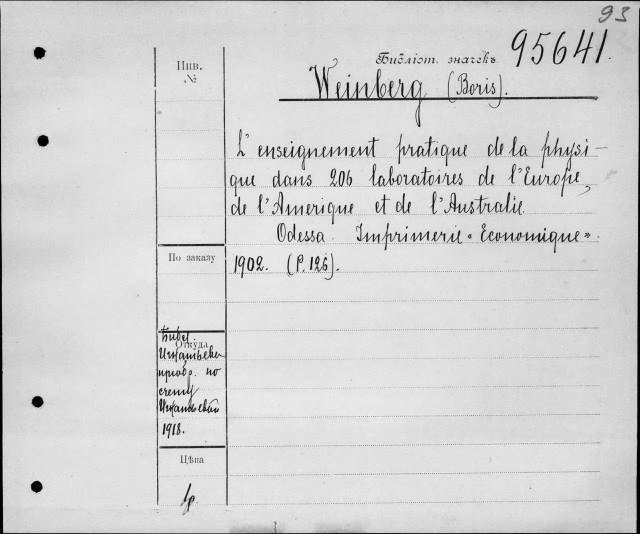 93
Библіот. значекъ 95641.
Инв.
№
Weinberg (Boris).
L'enseignement pratique de la physi-
que dans 206 laboratoires de l'Europe,
de l'Amerique et de l'Australie.
Odessa. Imprimerie "Economique".
По заказу
1902. (P. 126).
Откуда
Библ.
приобр. по
счету
1918.
Цѣна